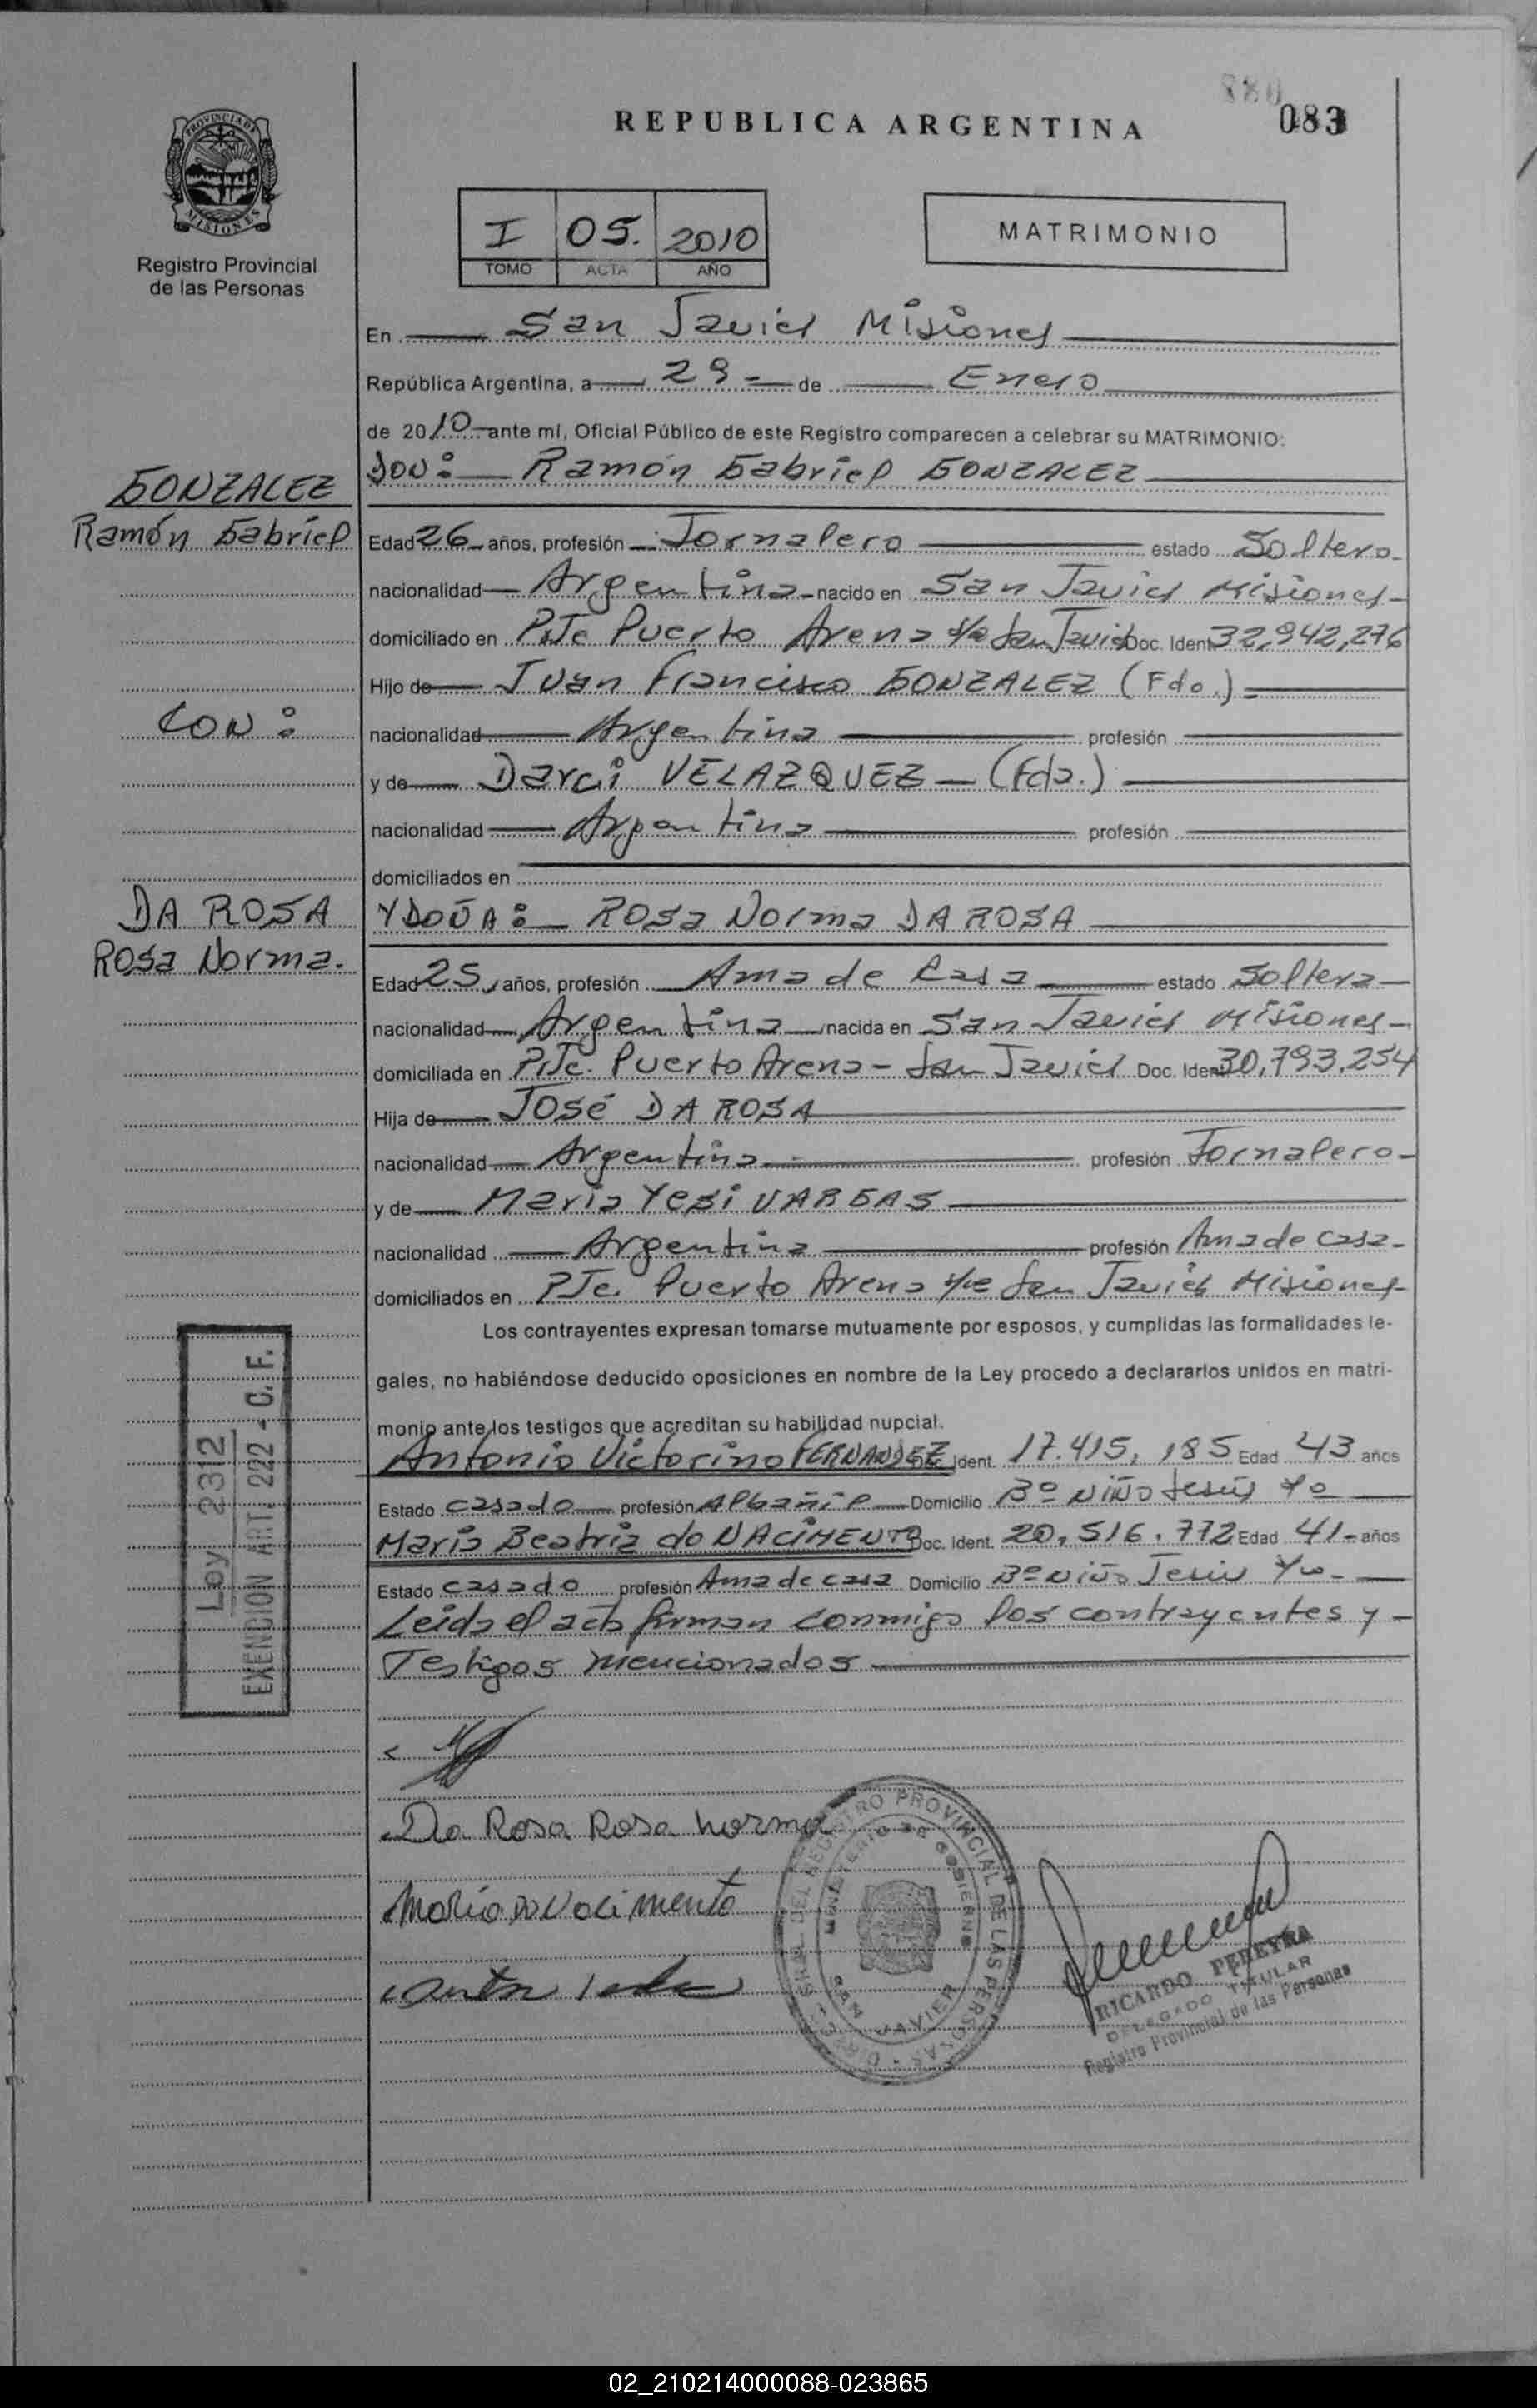 083
REPUBLICA ARGENTINA
PROVINCIA DE
MISIONES
Registro Provincial
de las Personas
I 05. 2010
TOMO ACTA AÑO
MATRIMONIO
En San Javier Misiones
República Argentina, a 29 - de Enero
de 2010 ante mí, Oficial Público de este Registro comparecen a celebrar su MATRIMONIO:
GONZALEZ
Ramón Gabriel
DON: Ramón Gabriel GONZALEZ
Edad 26 años, profesión Jornalero estado Soltero
nacionalidad Argentina nacido en San Javier Misiones
domiciliado en Pje Puerto Arena s/e San Javier Doc. Ident 32,942,276
Hijo de Juan Francisco GONZALEZ (Fdo.)
CON:
nacionalidad Argentina profesión
y de Darci VELAZQUEZ (Fda.)
nacionalidad Argentina profesión
domiciliados en
DA ROSA
Rosa Norma.
Y DOÑA: Rosa Norma DA ROSA
Edad 25 años, profesión Ama de Casa estado Soltera
nacionalidad Argentina nacida en San Javier Misiones
domiciliada en Pje. Puerto Arena - San Javier Doc. Ident 30,793,254
Hija de José DA ROSA
nacionalidad Argentina profesión Jornalero
y de Maria Yesi VARGAS
nacionalidad Argentina profesión Ama de casa
domiciliados en Pje. Puerto Arena s/e San Javier Misiones
Los contrayentes expresan tomarse mutuamente por esposos, y cumplidas las formalidades le-
gales, no habiéndose deducido oposiciones en nombre de la Ley procedo a declararlos unidos en matri-
monio ante los testigos que acreditan su habilidad nupcial.
Antonio Victorino FERNANDEZ Ident. 17.415,185 Edad 43 años
Estado casado profesión Albañil Domicilio Bº NIÑO Jesús
Maria Beatriz do NACIMENTO Doc. Ident. 20,516.772 Edad 41 años
Estado casado profesión Ama de casa Domicilio Bº NIÑO Jesús
Leida el acta firman conmigo los contrayentes y
Testigos mencionados
Ley 2312
EXENCION ART. 222 - C. F.
Da Rosa Rosa Norma
Maria DO Nacimento
REGISTRO PROVINCIAL DE LAS PERSONAS
MINISTERIO DE GOBIERNO
SAN JAVIER
RICARDO PEREYRA
DELEGADO TITULAR
Registro Provincial de las Personas
02_210214000088-023865